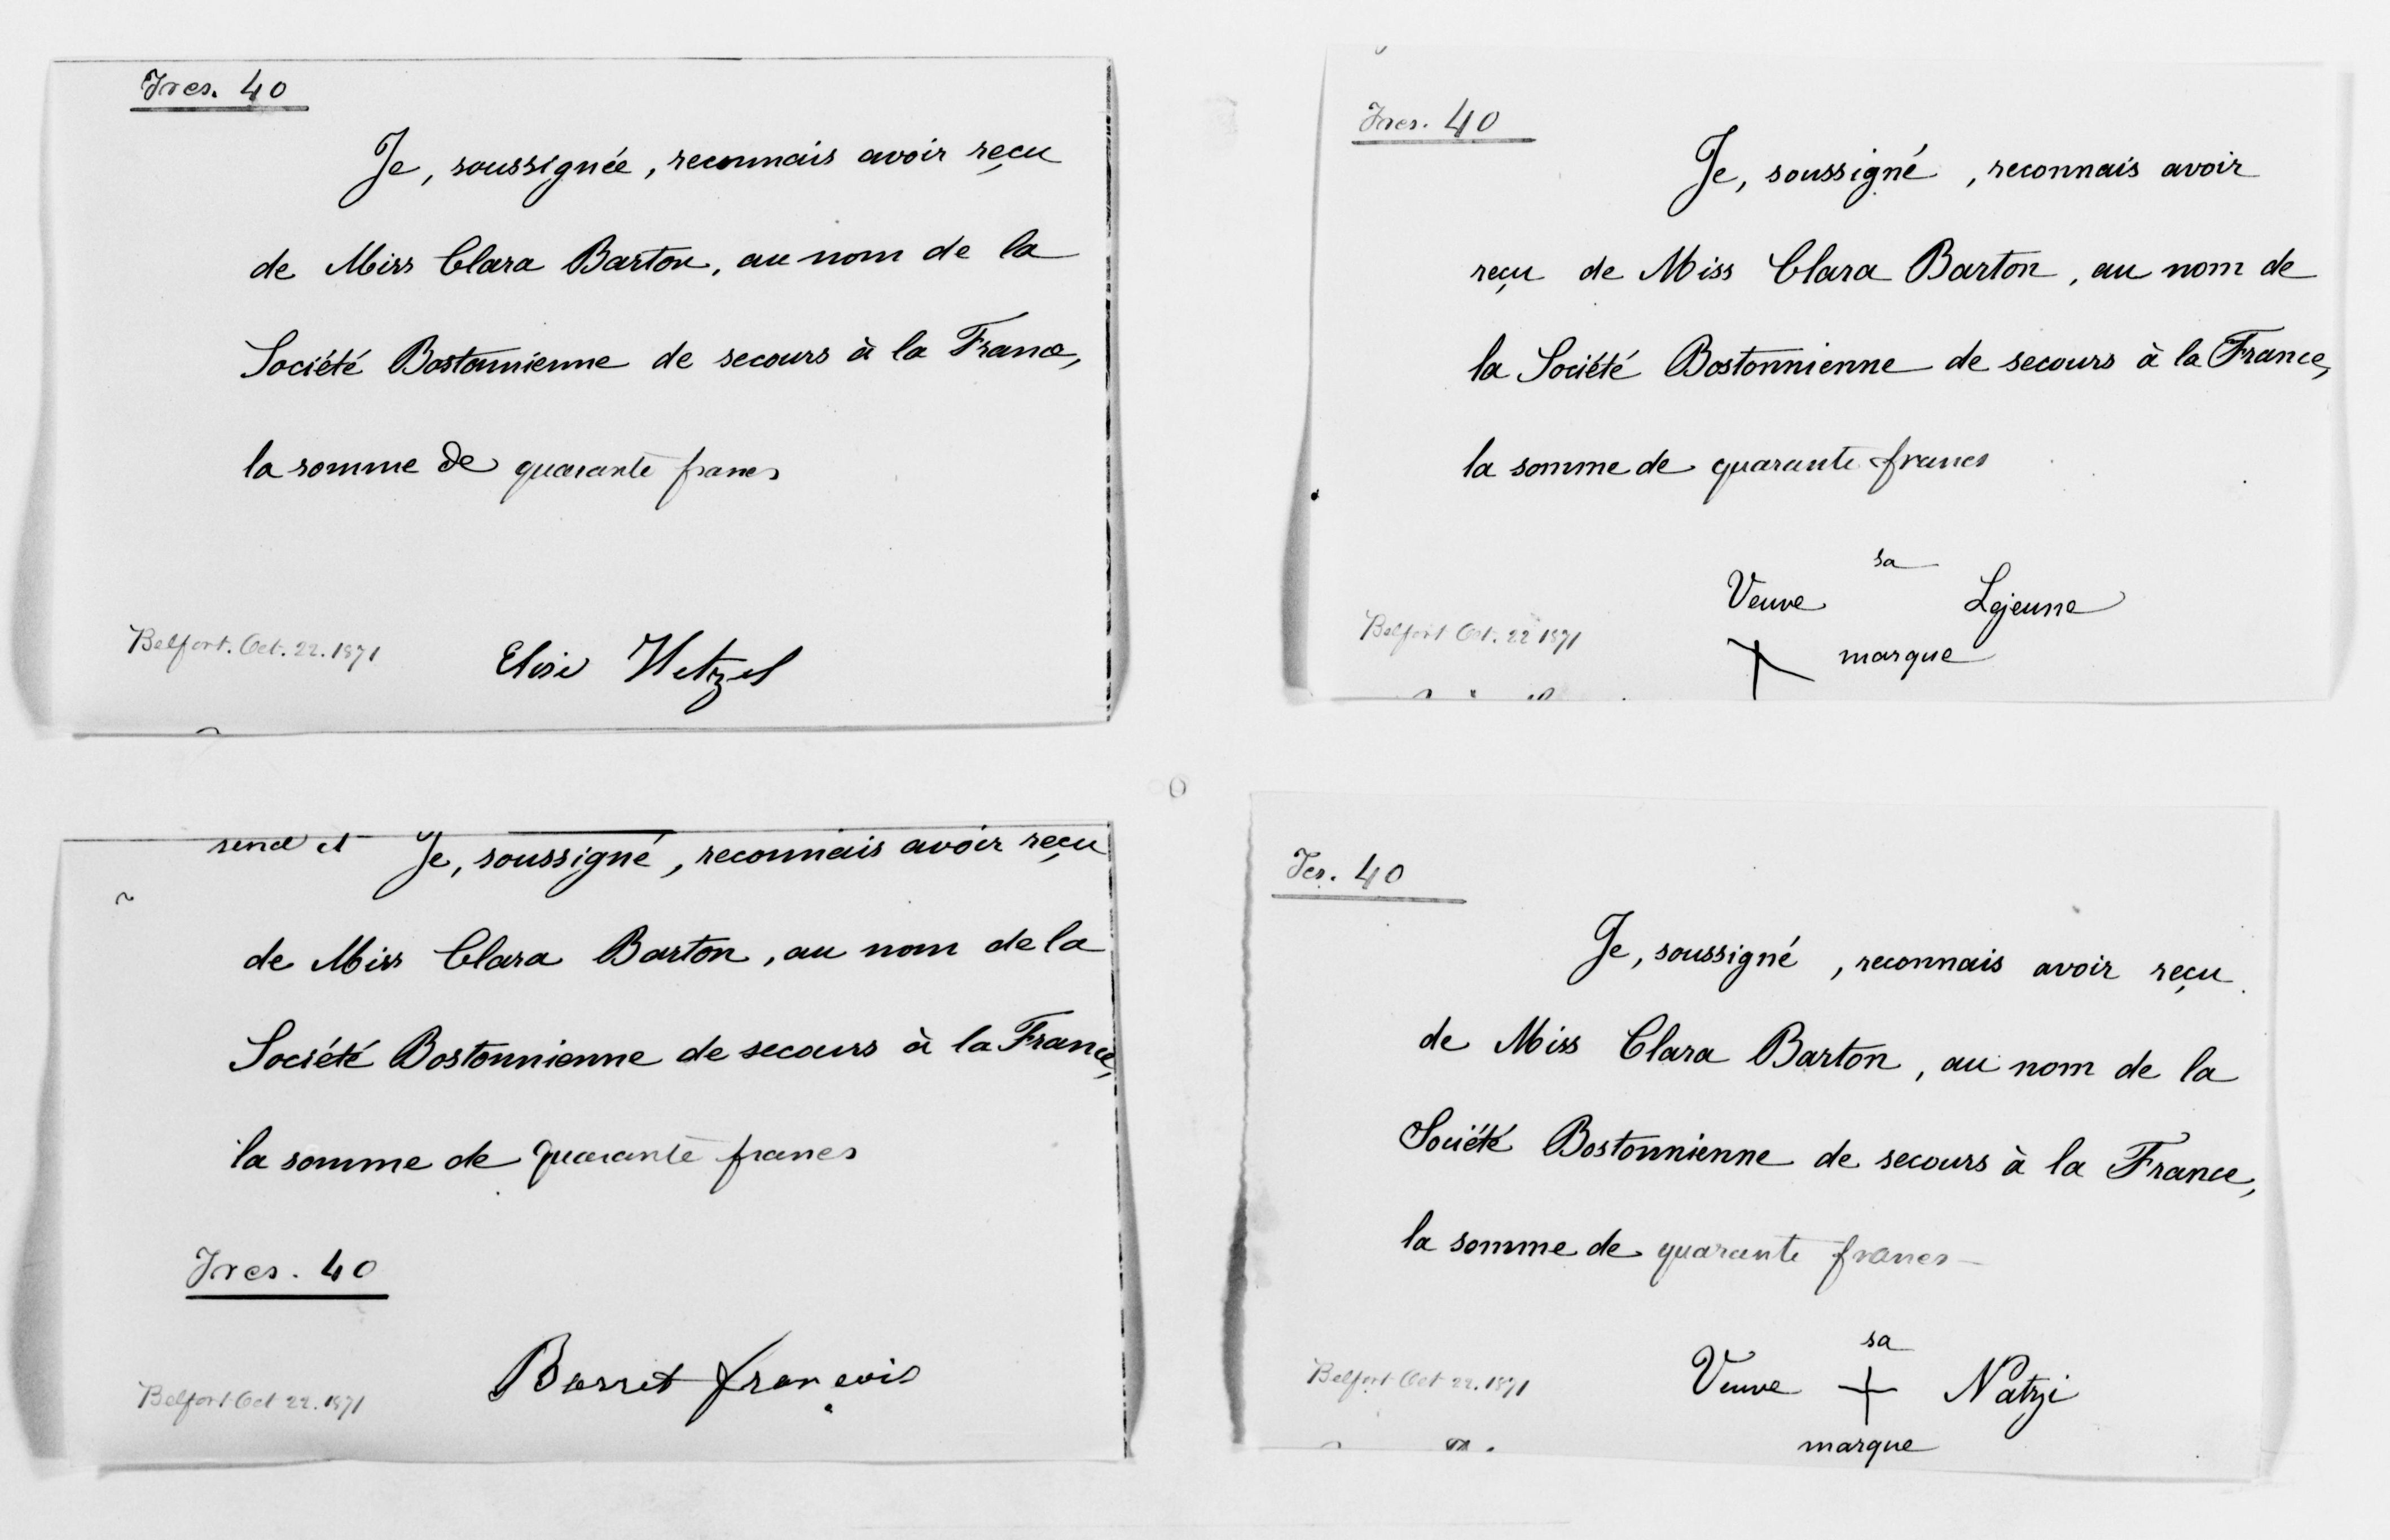 Frcs. 40
Je, soussignée, reconnais avoir reçu
de Miss Clara Barton, au nom de la
Société Bostonnienne de secours à la France,
la somme de quarante francs
Belfort. Oct. 22. 1871
Elise Hetzel
Frcs. 40
Je, soussigné, reconnais avoir
reçu de Miss Clara Barton, au nom de
la Société Bostonnienne de secours à la France,
la somme de quarante francs
sa
Veuve Lejeune
Belfort Oct. 22 1871
marque
Je, soussigné, reconnais avoir reçu
de Miss Clara Barton, au nom de la
Société Bostonnienne de secours à la France,
la somme de quarante francs
Frcs. 40
Belfort Oct 22. 1871
Borret françois
Fcs. 40
Je, soussigné, reconnais avoir reçu
de Miss Clara Barton, au nom de la
Société Bostonnienne de secours à la France,
la somme de quarante francs
sa
Belfort Oct 22. 1871
Veuve + Natzi
marque